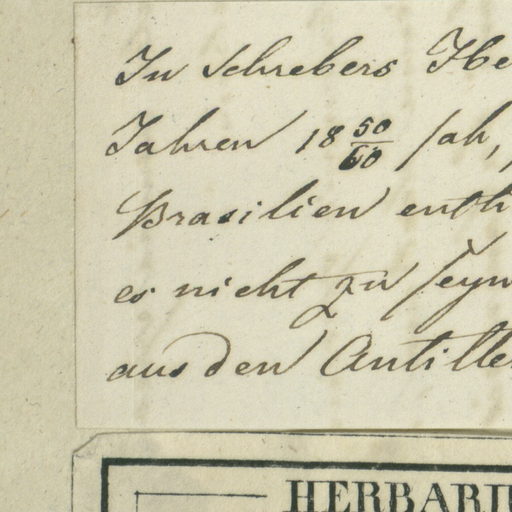 In Schrebers He
Jahren 18 50/60 sah,
Brasilien enth
es nicht zu seyn
aus den Antille
HERBARI